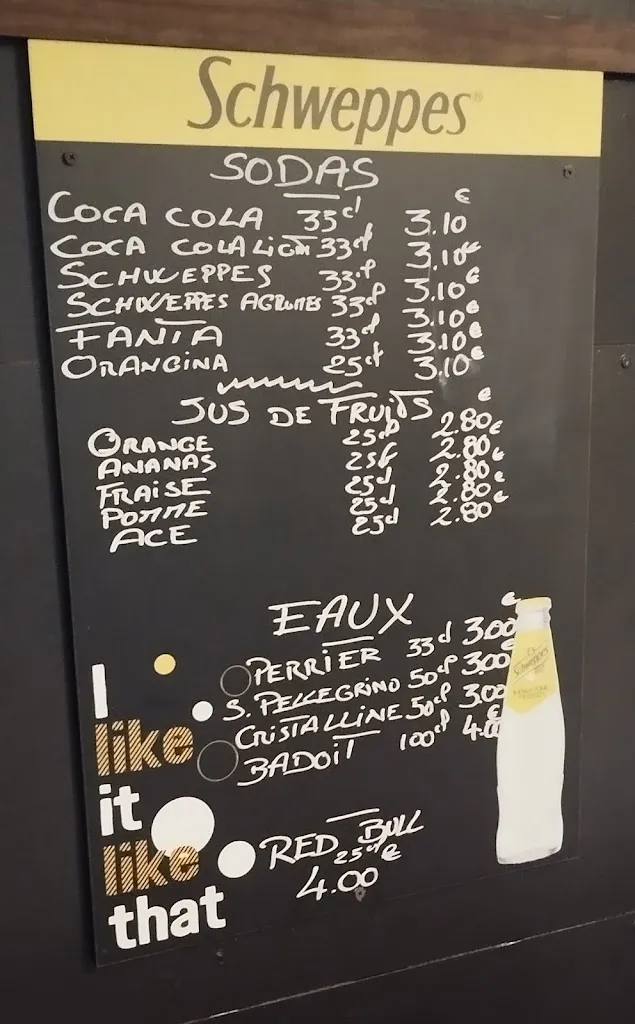 Schweppes®
SODAS
COCA COLA 35cl 3.10€
COCA COLA LIGHT 33cl 3.10€
SCHWEPPES 33cl 3.10€
SCHWEPPES AGRUMES 33cl 3.10€
FANTA 33cl 3.10€
ORANGINA 25cl 3.10€
JUS DE FRUITS
ORANGE 25cl 2.80€
ANANAS 25cl 2.80€
FRAISE 25cl 2.80€
POMME 25cl 2.80€
ACE 25cl 2.80€
EAUX
PERRIER 33cl 3.00€
S. PELLEGRINO 50cl 3.00€
CRISTALLINE 50cl 3.00€
BADOIT 100cl 4.00€
RED BULL
25cl €
4.00
I
like
it
like
that
Schweppes